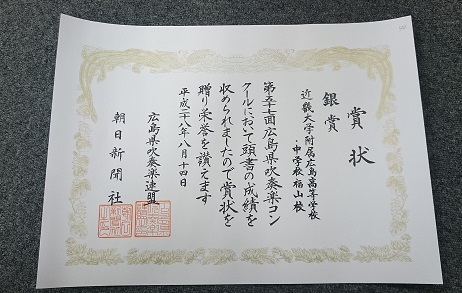 賞状
銀賞
近畿大学附属広島高等学校
・中学校福山校
第五十七回広島県吹奏楽コン
クールにおいて頭書の成績を
収められましたので賞状を
贈り栄誉を讃えます
平成二十八年八月十四日
広島県吹奏楽連盟
朝日新聞社